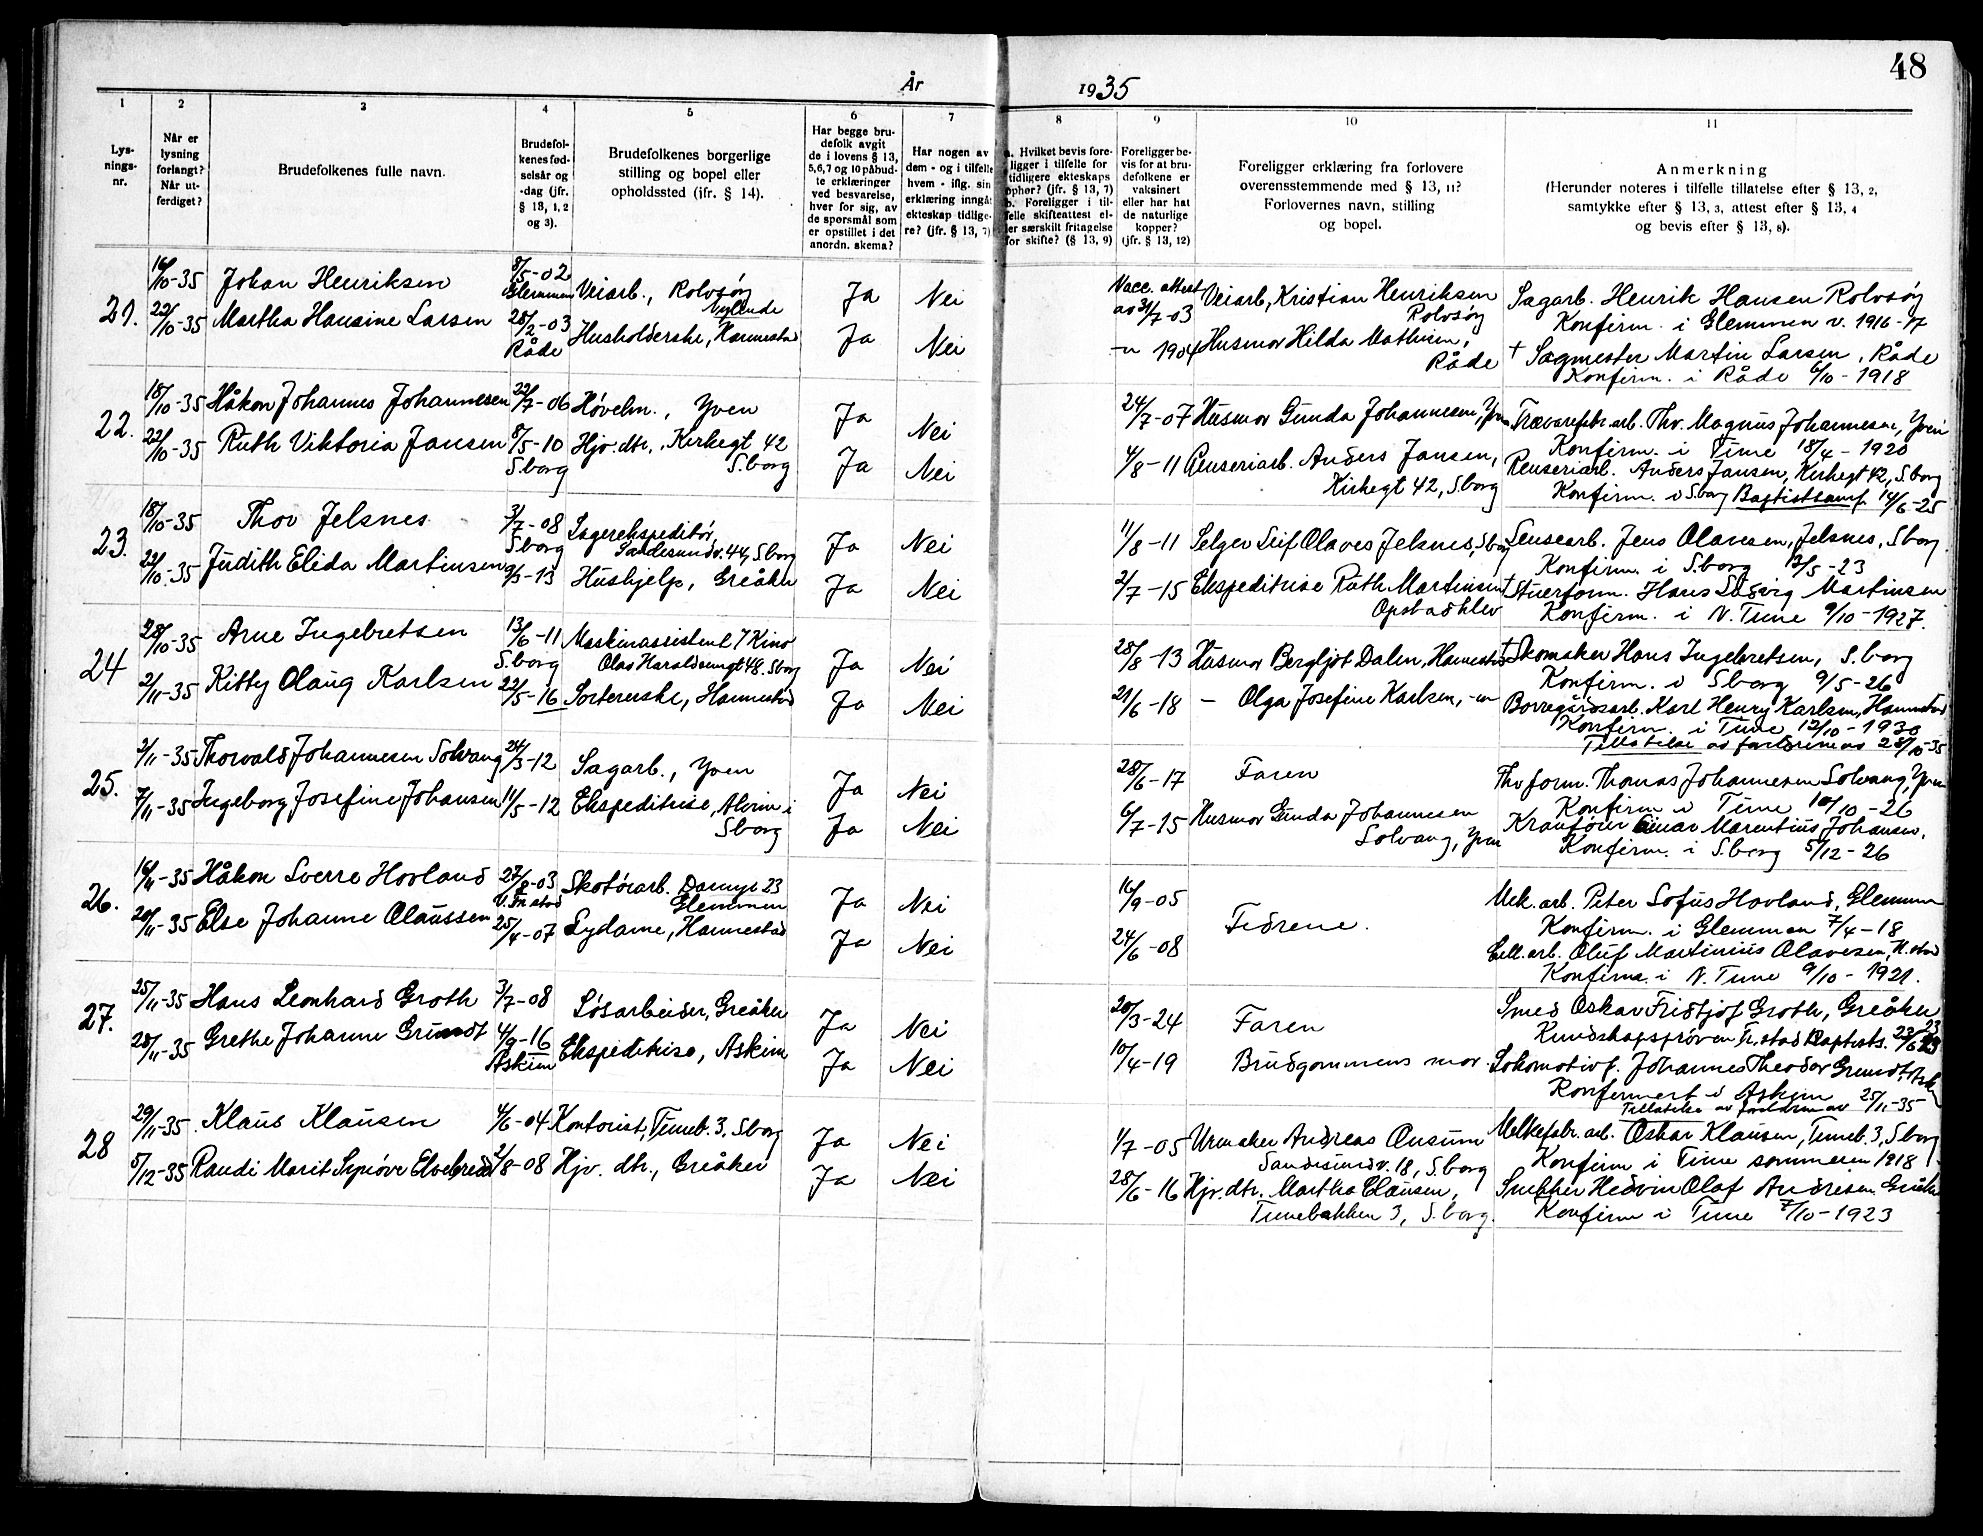 48
År 1935
1 2 3 4 5 6 7 8 9 10 11
Lys-
nings-
nr.
Når er
lysning
forlangt?
Når ut-
ferdiget?
Brudefolkenes fulle navn.
Brudefol-
kenes fød-
selsår og
-dag (jfr.
§ 13, 1, 2
og 3).
Brudefolkenes borgerlige
stilling og bopel eller
opholdssted (jfr. § 14).
Har begge bru-
defolk avgit
de i lovens § 13,
5,6,7 og 10 påbud-
te erklæringer
ved besvarelse,
hver for sig, av
de spørsmål som
er opstillet i det
anordn. skema?
Har nogen av
dem - og i tilfelle
hvem - iflg. sin
erklæring inngåt
ekteskap tidlige-
re? (jfr. § 13, 7)
a. Hvilket bevis fore-
ligger i tilfelle for
tidligere ekteskaps
ophør? (jfr. § 13, 7)
b. Foreligger i til-
felle skifteattest el-
ler særskilt fritagelse
for skifte? (§ 13, 9)
Foreligger be-
vis for at bru-
defolkene er
vaksinert
eller har hat
de naturlige
kopper?
(jfr. § 13, 12)
Foreligger erklæring fra forlovere
overensstemmende med § 13, 11?
Forlovernes navn, stilling
og bopel.
Anmerkning
(Herunder noteres i tilfelle tillatelse efter § 13, 2,
samtykke efter § 13, 3, attest efter § 13, 4
og bevis efter § 13, 8).
21. 16/10-35 Johan Henriksen 8/5-02 Glemmen Veiarb., Rolvsøy Nylende Ja Nei Vacc. attest av 31/7-03 Veiarb, Kristian Henriksen Rolvsøy Sagarb. Henrik Hansen Rolvsøy
Konfirm. i Glemmen v. 1916-17
22/10-35 Martha Hansine Larsen 28/2-03 Råde Husholderske, Hannestad Ja Nei -"- 1904 Husmor Hilda Mathisen, Råde † Sagmester Martin Larsen, Råde
Konfirm. i Råde 6/10-1918
22. 18/10-35 Håkon Johannes Johannesen 22/7-06 Høvelm., Yven Ja Nei 24/7-07 Husmor Gunda Johannesen, Yven Trævarefbr.arb. Thv. Magnus Johannesen, Yven
Konfirm. i Tune 18/4-1920
22/10-35 Ruth Viktoria Jansen 8/5-10 S.borg Hjv. dtr., Kirkegt 42 S.borg Ja Nei 4/8-11 Renseriarb. Anders Jansen, Kirkegt 42, S.borg Renseriarb. Anders Jansen, Kirkegt 42, S.borg
Konfirm. i S.borg Baptistsamf 14/6-25
23. 18/10-35 Thov Jelsnes 3/7-08 S.borg Lagerekspeditør, Sandesundv. 44, S.borg Ja Nei 11/8-11 Selger Leif Olaves Jelsnes, S.borg Lensearb. Jens Olavesen, Jelsnes, S.borg.
Konfirm. i S.borg 13/5-23
22/10-35 Judith Elida Martinsen 9/3-13 Hushjelp, Greåker Ja Nei 2/7-15 Ekspeditrise Ruth Martinsen Opstadhlev † Stuerform. Hans Ludvig Martinsen
Konfirm. i N. Tune 9/10-1927.
24 28/10-35 Arne Ingebretsen 13/6-11 S.borg Maskinassistent / Kino Olav Haraldsøngt 48. S.borg Ja Nei 28/8-13 Husmor Bergljot Dalen, Hannestad † Skomaker Hans Ingebretsen, S.borg
Konfirm. i S.borg 9/5-26
2/11-35 Kitty Olaug Karlsen 22/5-16 Sortererske, Hannestad Ja Nei 21/6-18 - Olga Josefine Karlsen, -"- Borregårdsarb. Karl Henry Karlsen, Hannestad
Konfirm. i Tune 12/10-1930
Tillatelse av foreldrene av 28/10-35
25. 2/11-35 Thorvald Johannesen Solvang 24/3-12 Sagarb., Yven Ja Nei 28/6-17 Faren Thv form. Thomas Johannesen Solvang, Yven
Konfirm. i Tune 10/10-26
7/11-35 Ingeborg Josefine Johansen 11/5-12 Ekspeditrise, Alvim i S.borg Ja Nei 6/7-15 Husmor Gunda Johannesen Solvang, Yven Kranfører Einar Marentius Johansen.
Konfirm. i S.borg 5/12-26
26. 16/11-35 Håkon Sverre Hovland 27/8-03 V. Fr.stad Skotøiarb. Damyr 23 Glemmen Ja Nei 16/9-05 Fedrene. Mek. arb. Peter Sofus Hovland, Glemmen
Konfirm. i Glemmen 7/4-18
20/11-35 Else Johanne Olaussen 25/4-07 Sydame, Hannestad Ja Nei 24/6-08 Cell. arb. Oluf Martinius Olavesen, H.stad
Konfirm. i N. Tune 9/10-1921.
27. 25/11-35 Hans Leonhard Groth 3/7-08 Løsarbeider, Greåker Ja Nei 20/3-24 Faren Smed Oskar Fridtjof Groth, Greåker
Kundskapsprøven Fr.stad Baptists. 23/6 23
28/11-35 Grethe Johanne Grundt 4/9-16 Askim Ekspeditrise, Askim Ja Nei 10/4-19 Brudgommens mor. Lokomotivf. Johannes Theodor Grundt, Ask
Konfirmert i Askim
Tillatelse av foreldrene av 25/11-35
28 29/11-35 Klaus Klausen 4/6-04 Kontorist, Tuneb. 3, S.borg Ja Nei 1/7-05 Urmaker Andreas Ousum Sandesundv. 18, S.borg Melkefabr. arb. Oskar Klausen, Tuneb. 3, S.borg
Konfirm i Tune sommeren 1918
5/12-35 Randi Marit Synøve Elvebredd 2/8-08 Hjv. dtr., Greåker Ja Nei 28/6-16 Hjv. dtr. Martha Clausen, Tunebakken 3, S.borg. Snekker Hedvin Olaf Andresen. Greåker
Konfirm i Tune 7/10-1923